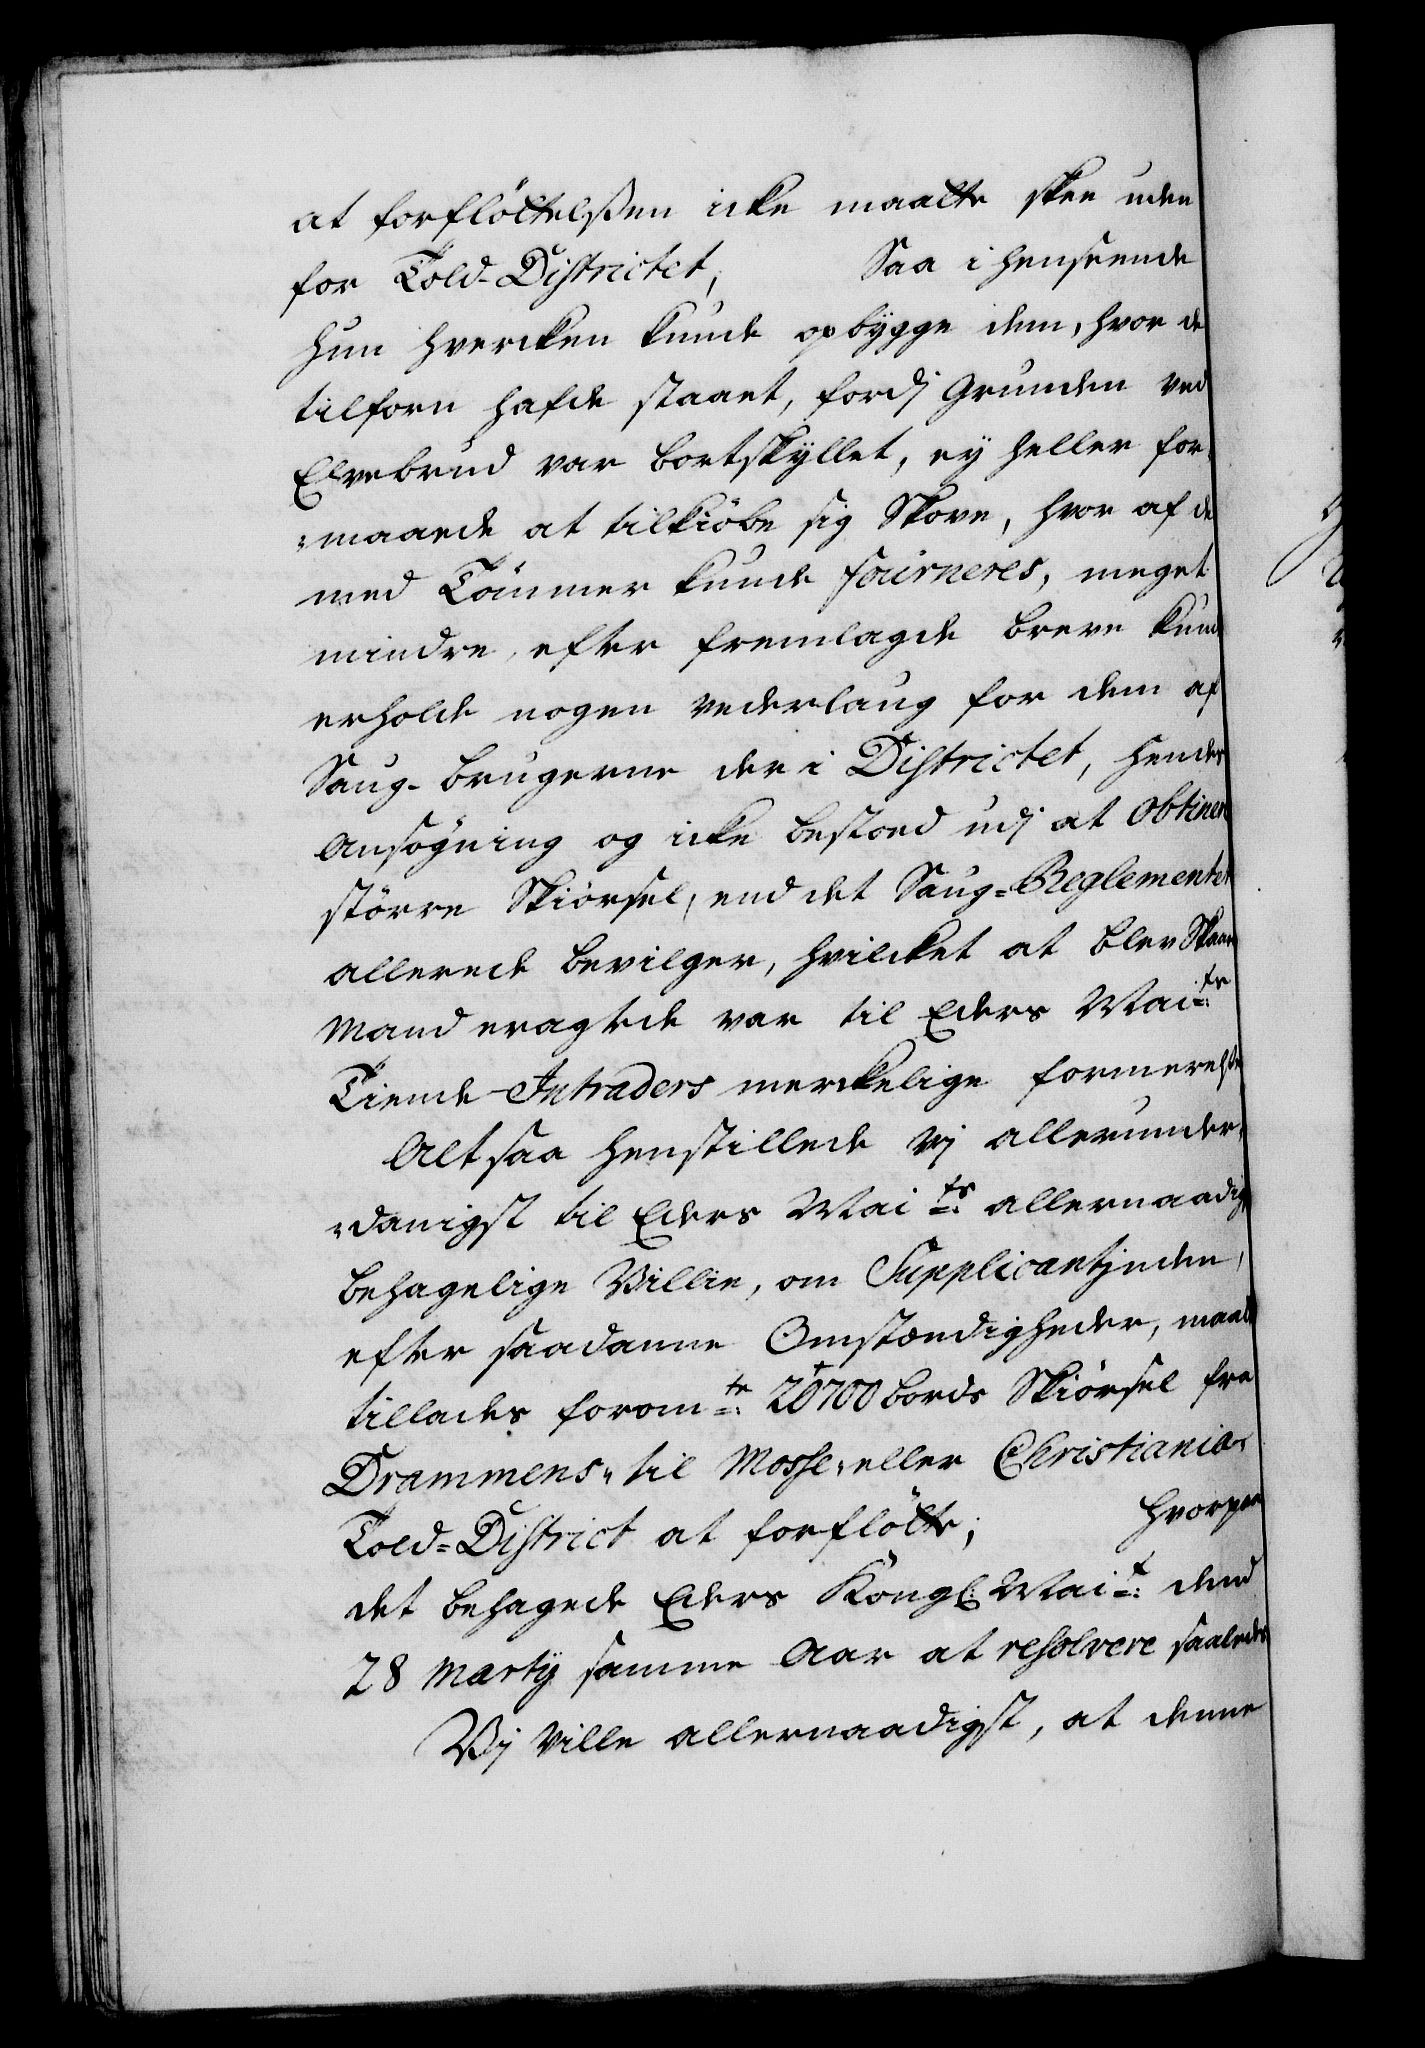 at forflöttelßen icke maatte skee uden
for Told-Districtet, Saa i henseende
hun hvercken kunde opbygge dem, hvor de
tilforn hafde staaet, fordj Grunden ved
Elvebrud var bortskyllet, ey heller for,
„maaede at tilkiöbe sig Skove, hvor af de
med Tömmer kunde fourneres, meget
mindre, efter fremlagde breve kund
erholde nogen vederlaug for dem af
Saug-brugerne der i Districtet, hendes
Ansøgning og icke bestoed udj at obtinere
större Skiörsel, end det Saug-Reglementet
allerede bevilger, hvilcket at blev Skaan
Mand eragtede var til Eders Mai:te
Tiende-Intraders merckelige formerelse
Altsaa henstillede vj allerunder,
„danigst til Eders Mai:ts allernaadig
behagelige Villie, om Supplicantinden,
efter saadanne Omstændigheder, maatte
tillades forom:te 20700 bords Skiörsel fra
Drammens, til Mosse, eller Christiania,
Told-District at forflötte; hvorpaa
det behagede Eders Kongl: Mai:t dend
28 Martij samme Aar at resolvere saaledes
Vj ville allernaadigst, at denne